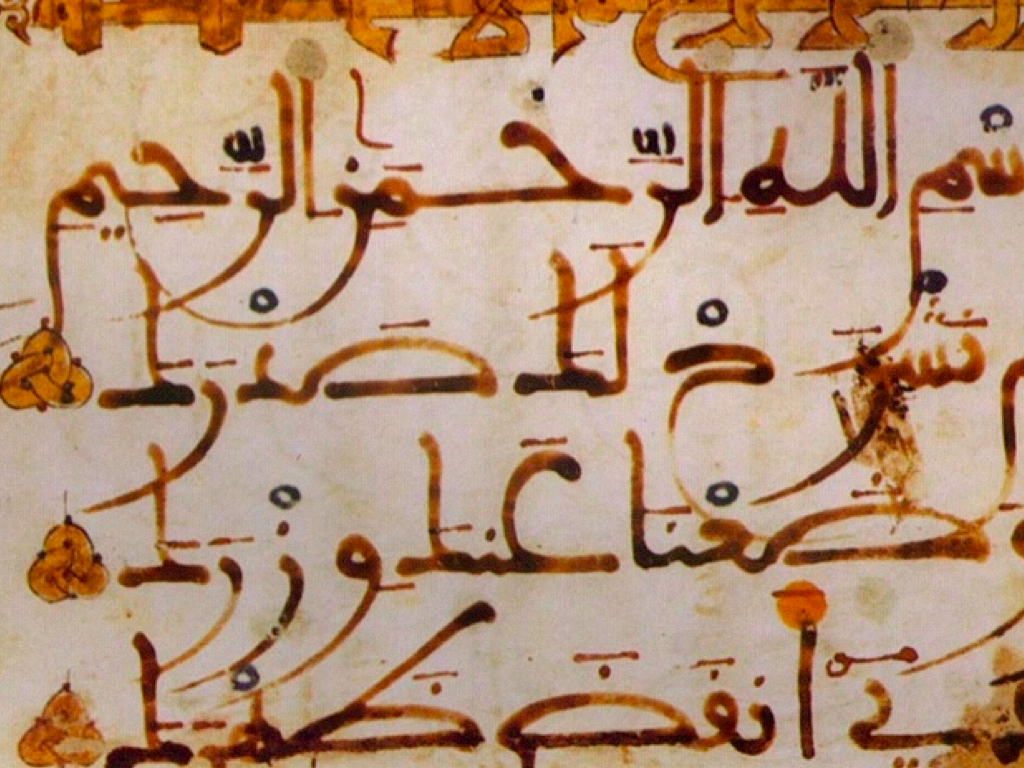 بسم الله الرحمن الرحيم
نشرح لك صدرك
وضعنا عنك وزرك
انقض ظهرك